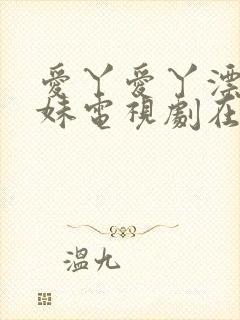 愛丫愛丫漂
妹電視劇在
溫九